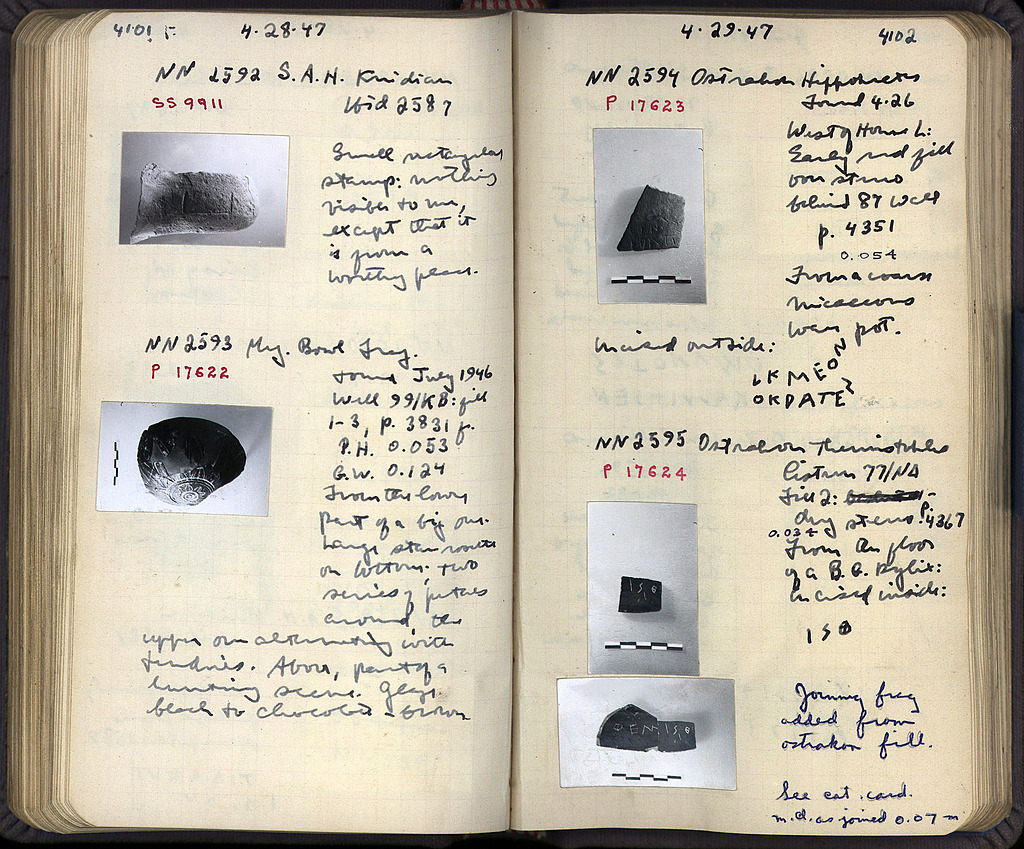 4101 F 4·28·47
NN 2592 S.A.H. Knidian
SS 9911 Wid 2587
Small rectangular
stamp: nothing
visible to me,
except that it
is from a
worthy place.
NN 2593 Meg. Bowl Frag.
P 17622
Found July 1946
Well 99/KB: fill
1-3, p. 3831 f.
P.H. 0.053
G.W. 0.124
From the lower
part of a big one.
Large star rosette
on bottom; two
series of petals
around the
upper one alternating with
tendrils. Above, part of a
hunting scene. Glaze
black to chocolate-brown
4·29·47 4102
NN 2594 Ostrakon Hippokrates
P 17623 Found 4·26
West of House L:
Early red fill
behind 87 Well
p. 4351
0.054
From a coarse
micaceous
ware pot.
Incised outside:
LKMEON
OKPATE
NN 2595 Ostrakon Themistokles
P 17624
Cistern 77/NA
Fill 2:
dry p. 4367
0.034
From the floor
of a B.G. Kylix:
Incised inside:
ISΘ
ΘEMISΘ
Joining frag
added from
ostrakon fill.
See cat. card.
m.d. as joined 0.07 m